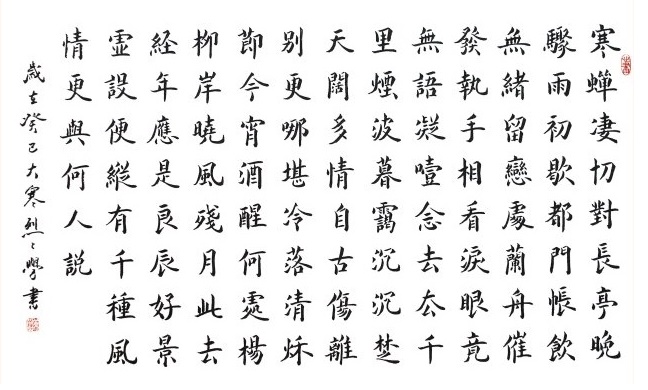 寒蟬凄切對長亭晚
驟雨初歇都門帳飲
無緒留戀處蘭舟催
發執手相看淚眼竟
無語凝噎念去去千
里煙波暮靄沉沉楚
天闊多情自古傷離
別更哪堪冷落清秋
節今宵酒醒何處楊
柳岸曉風殘月此去
経年應是良辰好景
虛設便縱有千種風
情更與何人説
歲在癸巳大寒烈〻學書